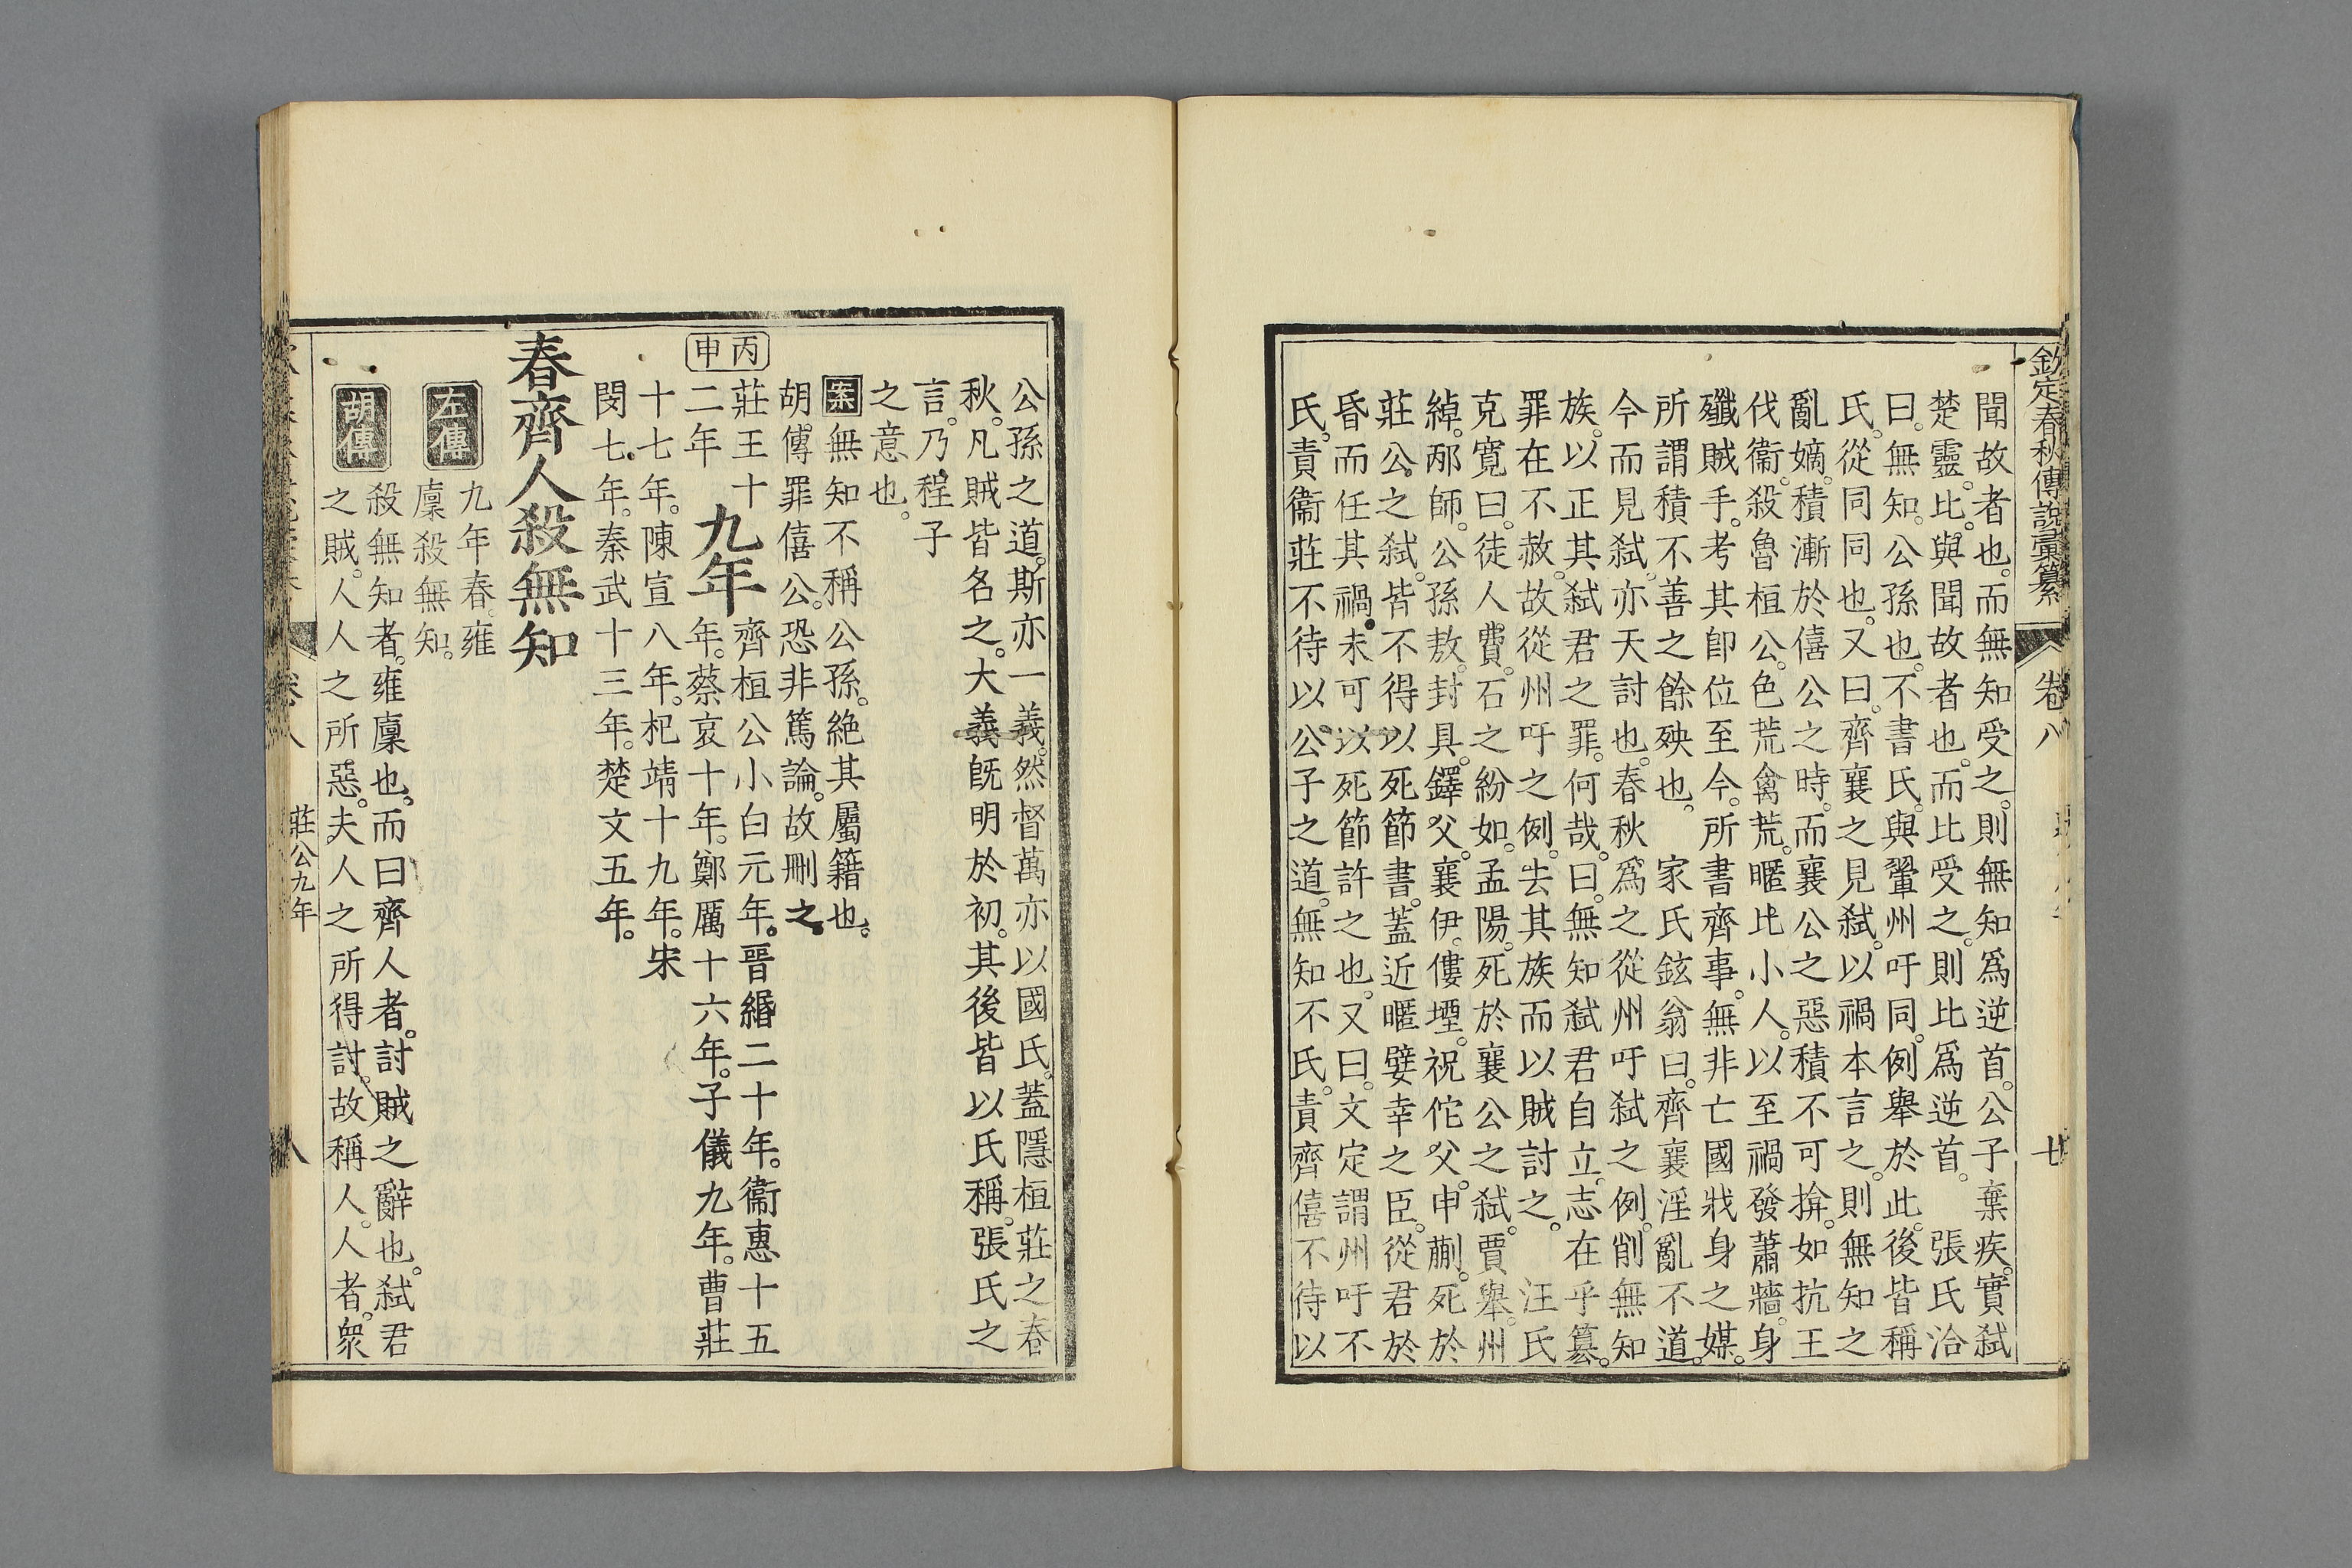 欽定春秋傳說彙纂 卷八
聞故者也。而無知受之。則無知爲逆首。公子棄疾。實弒
楚靈。比。與聞故者也。而比受之。則比爲逆首。 張氏洽
曰。無知。公孫也。不書氏。與翬州吁同。例舉於此。後皆稱
氏。從同同也。又曰。齊襄之見弒。以禍本言之。則無知之
亂嫡。積漸於僖公之時。而襄公之惡積不可揜。如抗王
伐衞。殺魯桓公。色荒禽荒。暱比小人。以至禍發蕭牆。身
殲賊手。考其卽位至今。所書齊事。無非亡國戕身之媒。
所謂積不善之餘殃也。 家氏鉉翁曰。齊襄淫亂不道。
今而見弒。亦天討也。春秋爲之從州吁弒之例。削無知
族。以正其弒君之罪。何哉。曰。無知弒君自立。志在乎篡。
罪在不赦。故從州吁之例。去其族而以賊討之。 汪氏
克寬曰。徒人費。石之紛如。孟陽。死於襄公之弒。賈舉。州
綽。邴師。公孫敖。封具。鐸父。襄伊。僂堙。祝佗父。申蒯。死於
莊公之弒。皆不得以死節書。蓋近暱嬖幸之臣。從君於
昏而任其禍。未可以死節許之也。又曰。文定謂州吁不
氏。責衞莊不待以公子之道。無知不氏。責齊僖不待以
公孫之道。斯亦一義。然督萬亦以國氏。蓋隱桓莊之春
秋。凡賊皆名之。大義旣明於初。其後皆以氏稱。張氏之
言。乃程子
之意也。
案無知不稱公孫。絕其屬籍也。
胡傳罪僖公。恐非篤論。故刪之。
丙申
莊王十二年 九年 齊桓公小白元年。晉緡二十年。衞惠十五
年。蔡哀十年。鄭厲十六年。子儀九年。曹莊
十七年。陳宣八年。杞靖十九年。宋
閔七年。秦武十三年。楚文五年。
春齊人殺無知
左傳 九年春。雍
廩殺無知。
胡傳 殺無知者。雍廩也。而曰齊人者。討賊之辭也。弒君
之賊。人人之所惡。夫人之所得討。故稱人。人者。衆
莊公九年